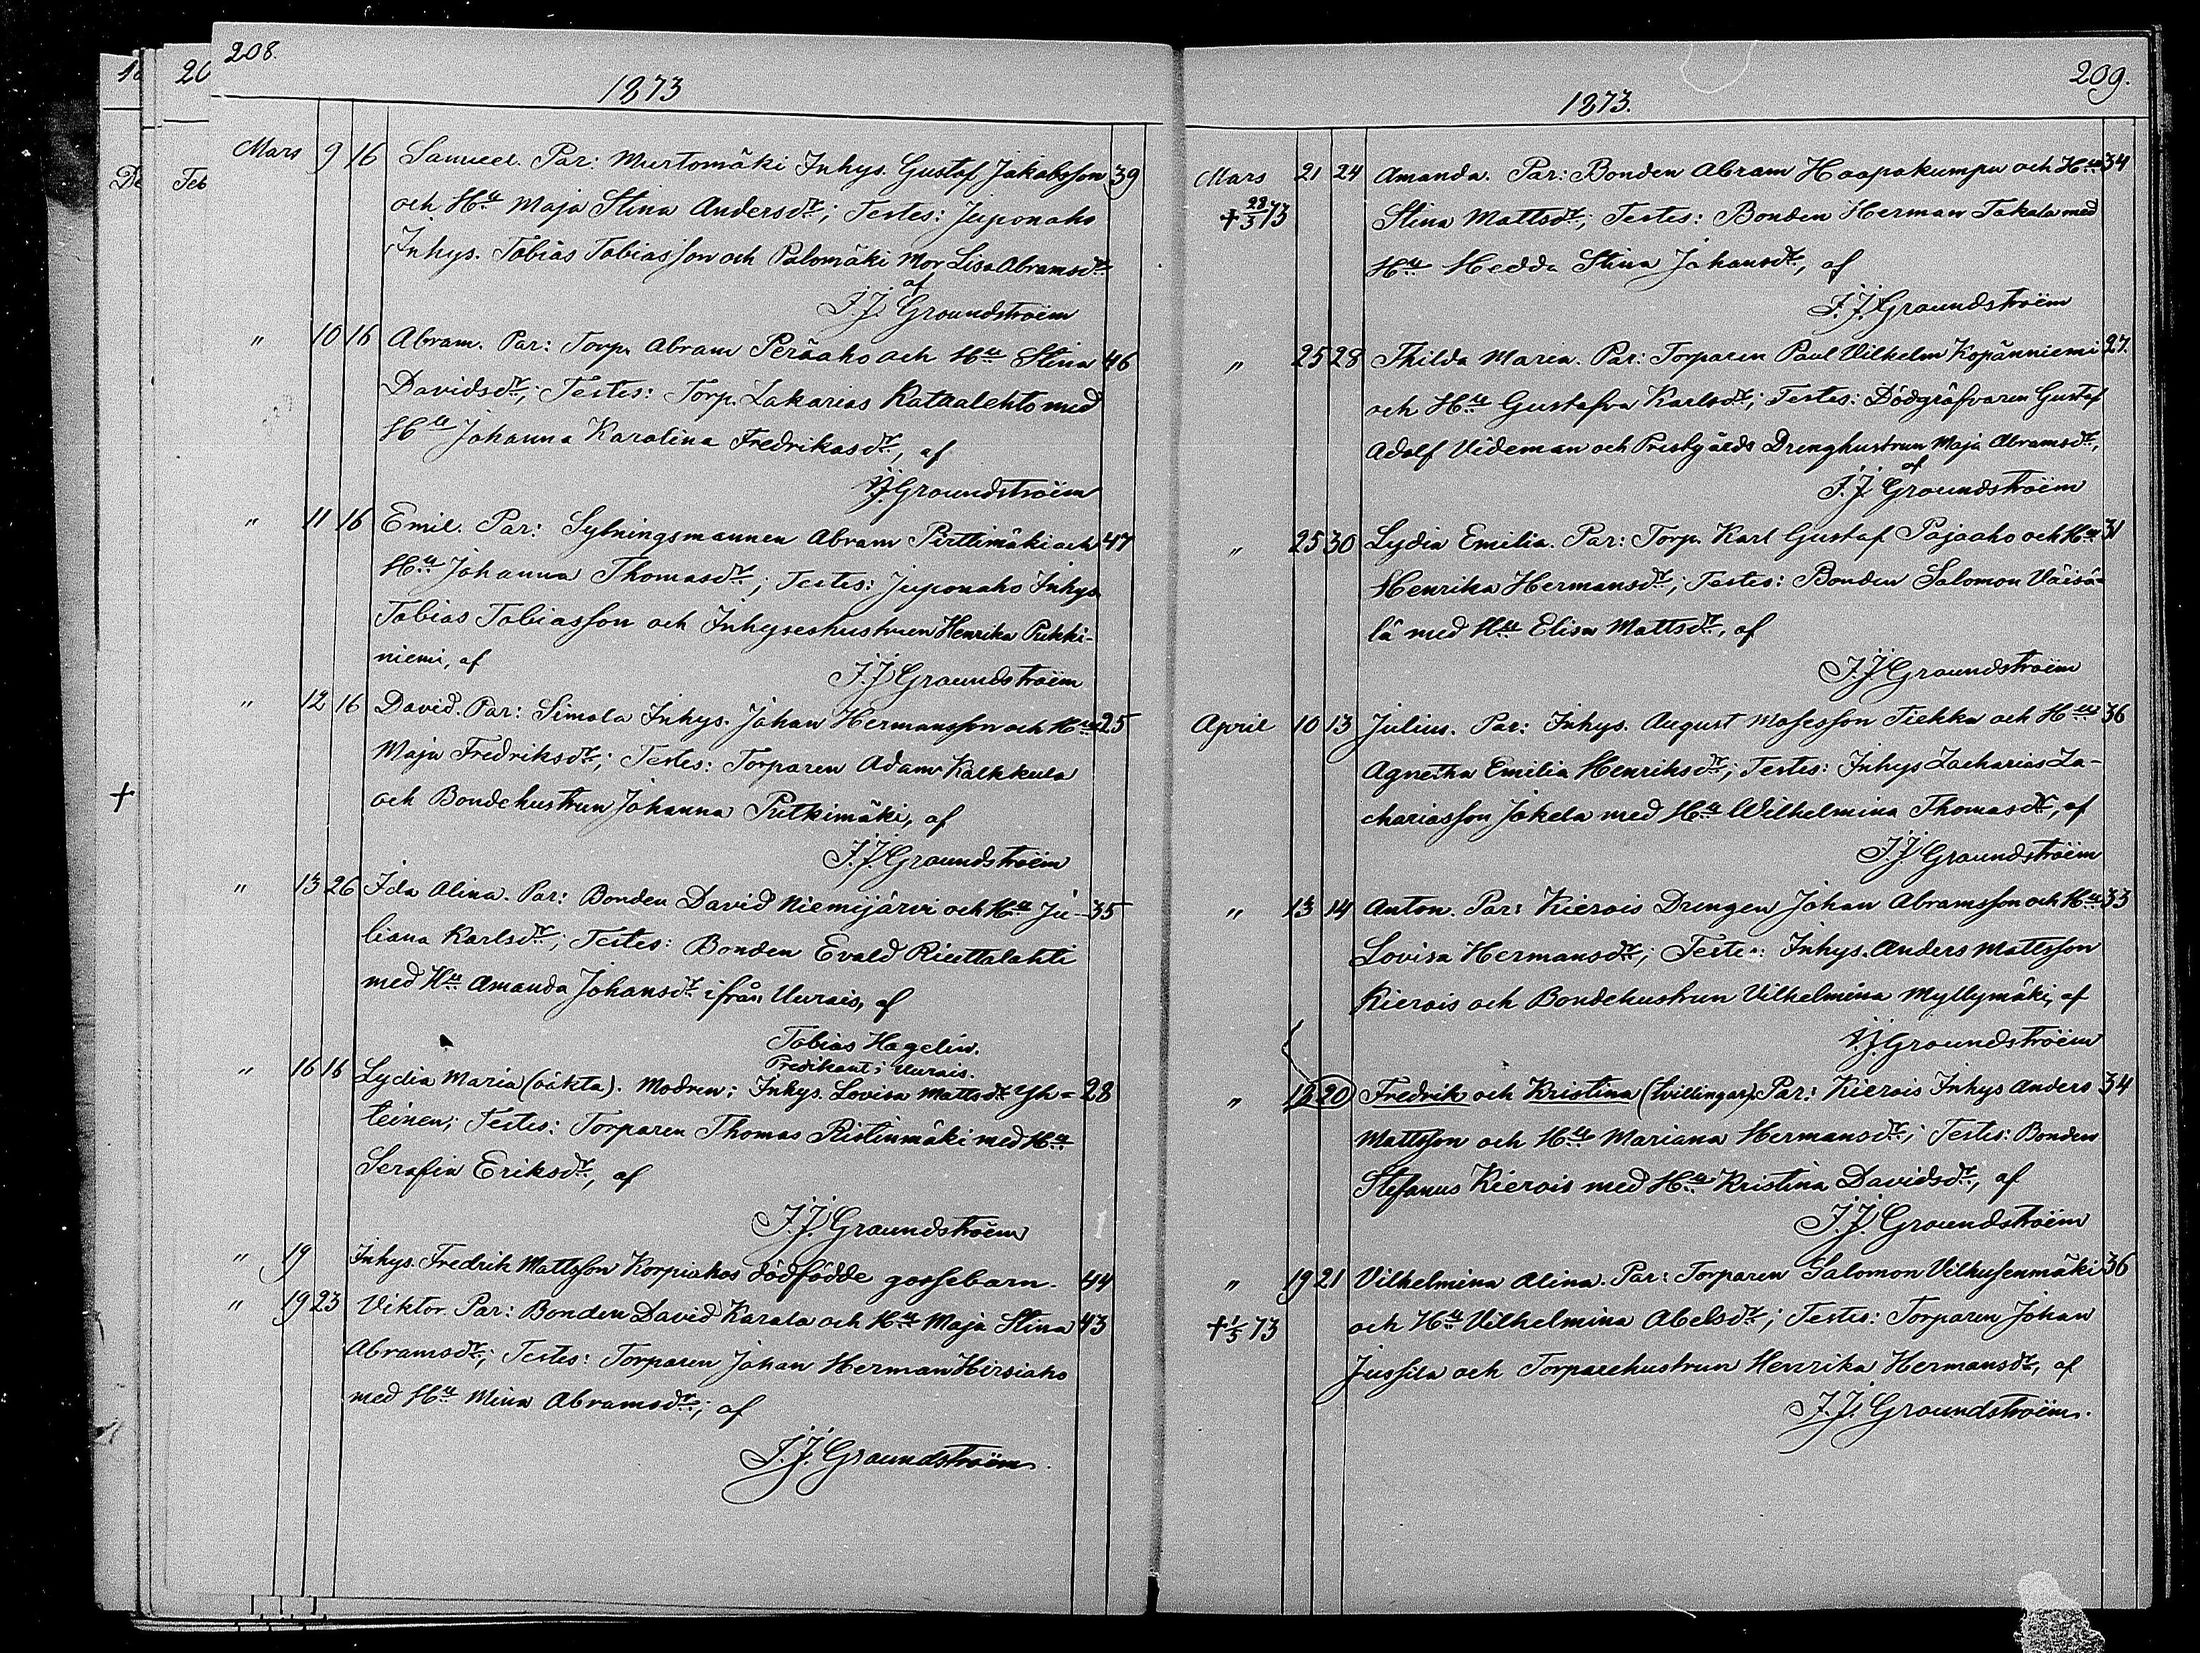 208.
1873
Mars 9 16 Samuel. Par: Murtomäki Inhys. Gustaf Jakobsson 39
och Hu Maja Stina Andersdr; Testes: Juponaho
Inhys. Tobias Tobiasson och Palomäki Mor Lisa Abramsdr
af
J. J. Groundstroëm
" 10 16 Abram. Par: Torp. Abram Peräaho och Hu Stina 46
Davidsdr; Testes: Torp. Zakarias Katralehto med
Hu Johanna Karolina Fredriksdr, af
J. J. Groundstroëm
" 11 16 Emil. Par: Sytningsmannen Abram Pirttimäki och 47
Hu Johanna Thomasdr; Testes: Juponaho Inhys
Tobias Tobiasson och Inhyseshustrun Henrika Pukki-
niemi, af
J. J. Groundstroëm
" 12 16 David. Par: Simola Inhys. Johan Hermansson och Hu 25
Maja Fredriksdr; Testes: Torparen Adam Kalkkula
och Bondehustrun Johanna Putkimäki, af
J. J. Groundstroëm
" 13 26 Ida Alina. Par: Bonden David Niemijärvi och Hu Ju- 35
liana Karlsdr; Testes: Bonden Evald Riuttalahti
med Hu Amanda Johansdr ifrån Uurais, af
Tobias Hagelin.
Predikant i Uurais.
" 16 18 Lydia Maria (oäkta). Modren: Inhys. Lovisa Mattsdr Yh= 28
teinen; Testes: Torparen Thomas Ristinmäki med Hu
Serafia Eriksdr, af
J. J. Groundstroëm
" 19 Inhys. Fredrik Mattsson Korpiahos dödfödde gossebarn. 44
" 19 23 Viktor. Par: Bonden David Karala och Hu Maja Stina 43
Abramsdr; Testes: Torparen Johan Herman Hirsiaho
med Hu Mina Abramsdr; af
J. J. Groundstroëm.
209.
1873.
Mars 21 24 Amanda. Par: Bonden Abram Haapakumpu och Hu 34
+ 28/3 73 Stina Mattsdr; Testes: Bonden Herman Takala med
Hu Hedda Stina Johansdr, af
J. J. Groundstroëm
" 25 28 Thilda Maria. Par: Torparen Paul Vilhelm Kopänniemi 27.
och Hu Gustafva Karlsdr; Testes: Dödgräfvaren Gustaf
Adolf Videman och Prestgårds Drenghustrun Maja Abramsdr,
af
J. J. Groundstroëm
" 25 30 Lydia Emilia. Par: Torp. Karl Gustaf Pajaaho och Hu 31
Henrika Hermansdr; Testes: Bonden Salomon Väisä=
lä med Hu Elisa Mattsdr, af
J. J. Groundstroëm
April 10 13 Julius. Par: Inhys. August Mosesson Tiehka och Hu 36
Agnetha Emilia Henriksdr; Testes: Inhys Zacharias Za-
chariasson Jokela med Hu Wilhelmina Thomasdr, af
J. J. Groundstroëm
" 13 14 Anton. Par: Kierois Drengen Johan Abramsson och Hu 33
Lovisa Hermansdr; Testes: Inhys. Anders Mattsson
Kierois och Bondehustrun Vilhelmina Myllymäki, af
J. J. Groundstroëm
" 12 20 Fredrik och Kristina (tvillingar). Par: Kierois Inhys Anders 34
Mattsson och Hu Mariana Hermansdr; Testes: Bonden
Stefanus Kierois med Hu Kristina Davidsdr, af
J. J. Groundstroëm
" 19 21 Vilhelmina Alina. Par: Torparen Salomon Vilhusenmäki 36
+ 1/5 73 och Hu Vilhelmina Abelsdr; Testes: Torparen Johan
Jussila och Torparehustrun Henrika Hermansdr, af
J. J. Groundstroëm.